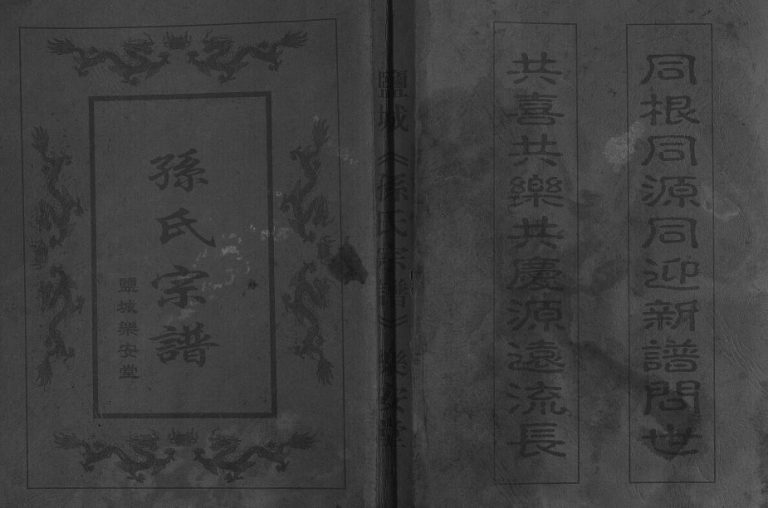 同根同源同迎新譜問世
共喜共樂共慶源遠流長
鹽城《孫氏宗譜》樂安堂
孫氏宗譜
鹽城樂安堂